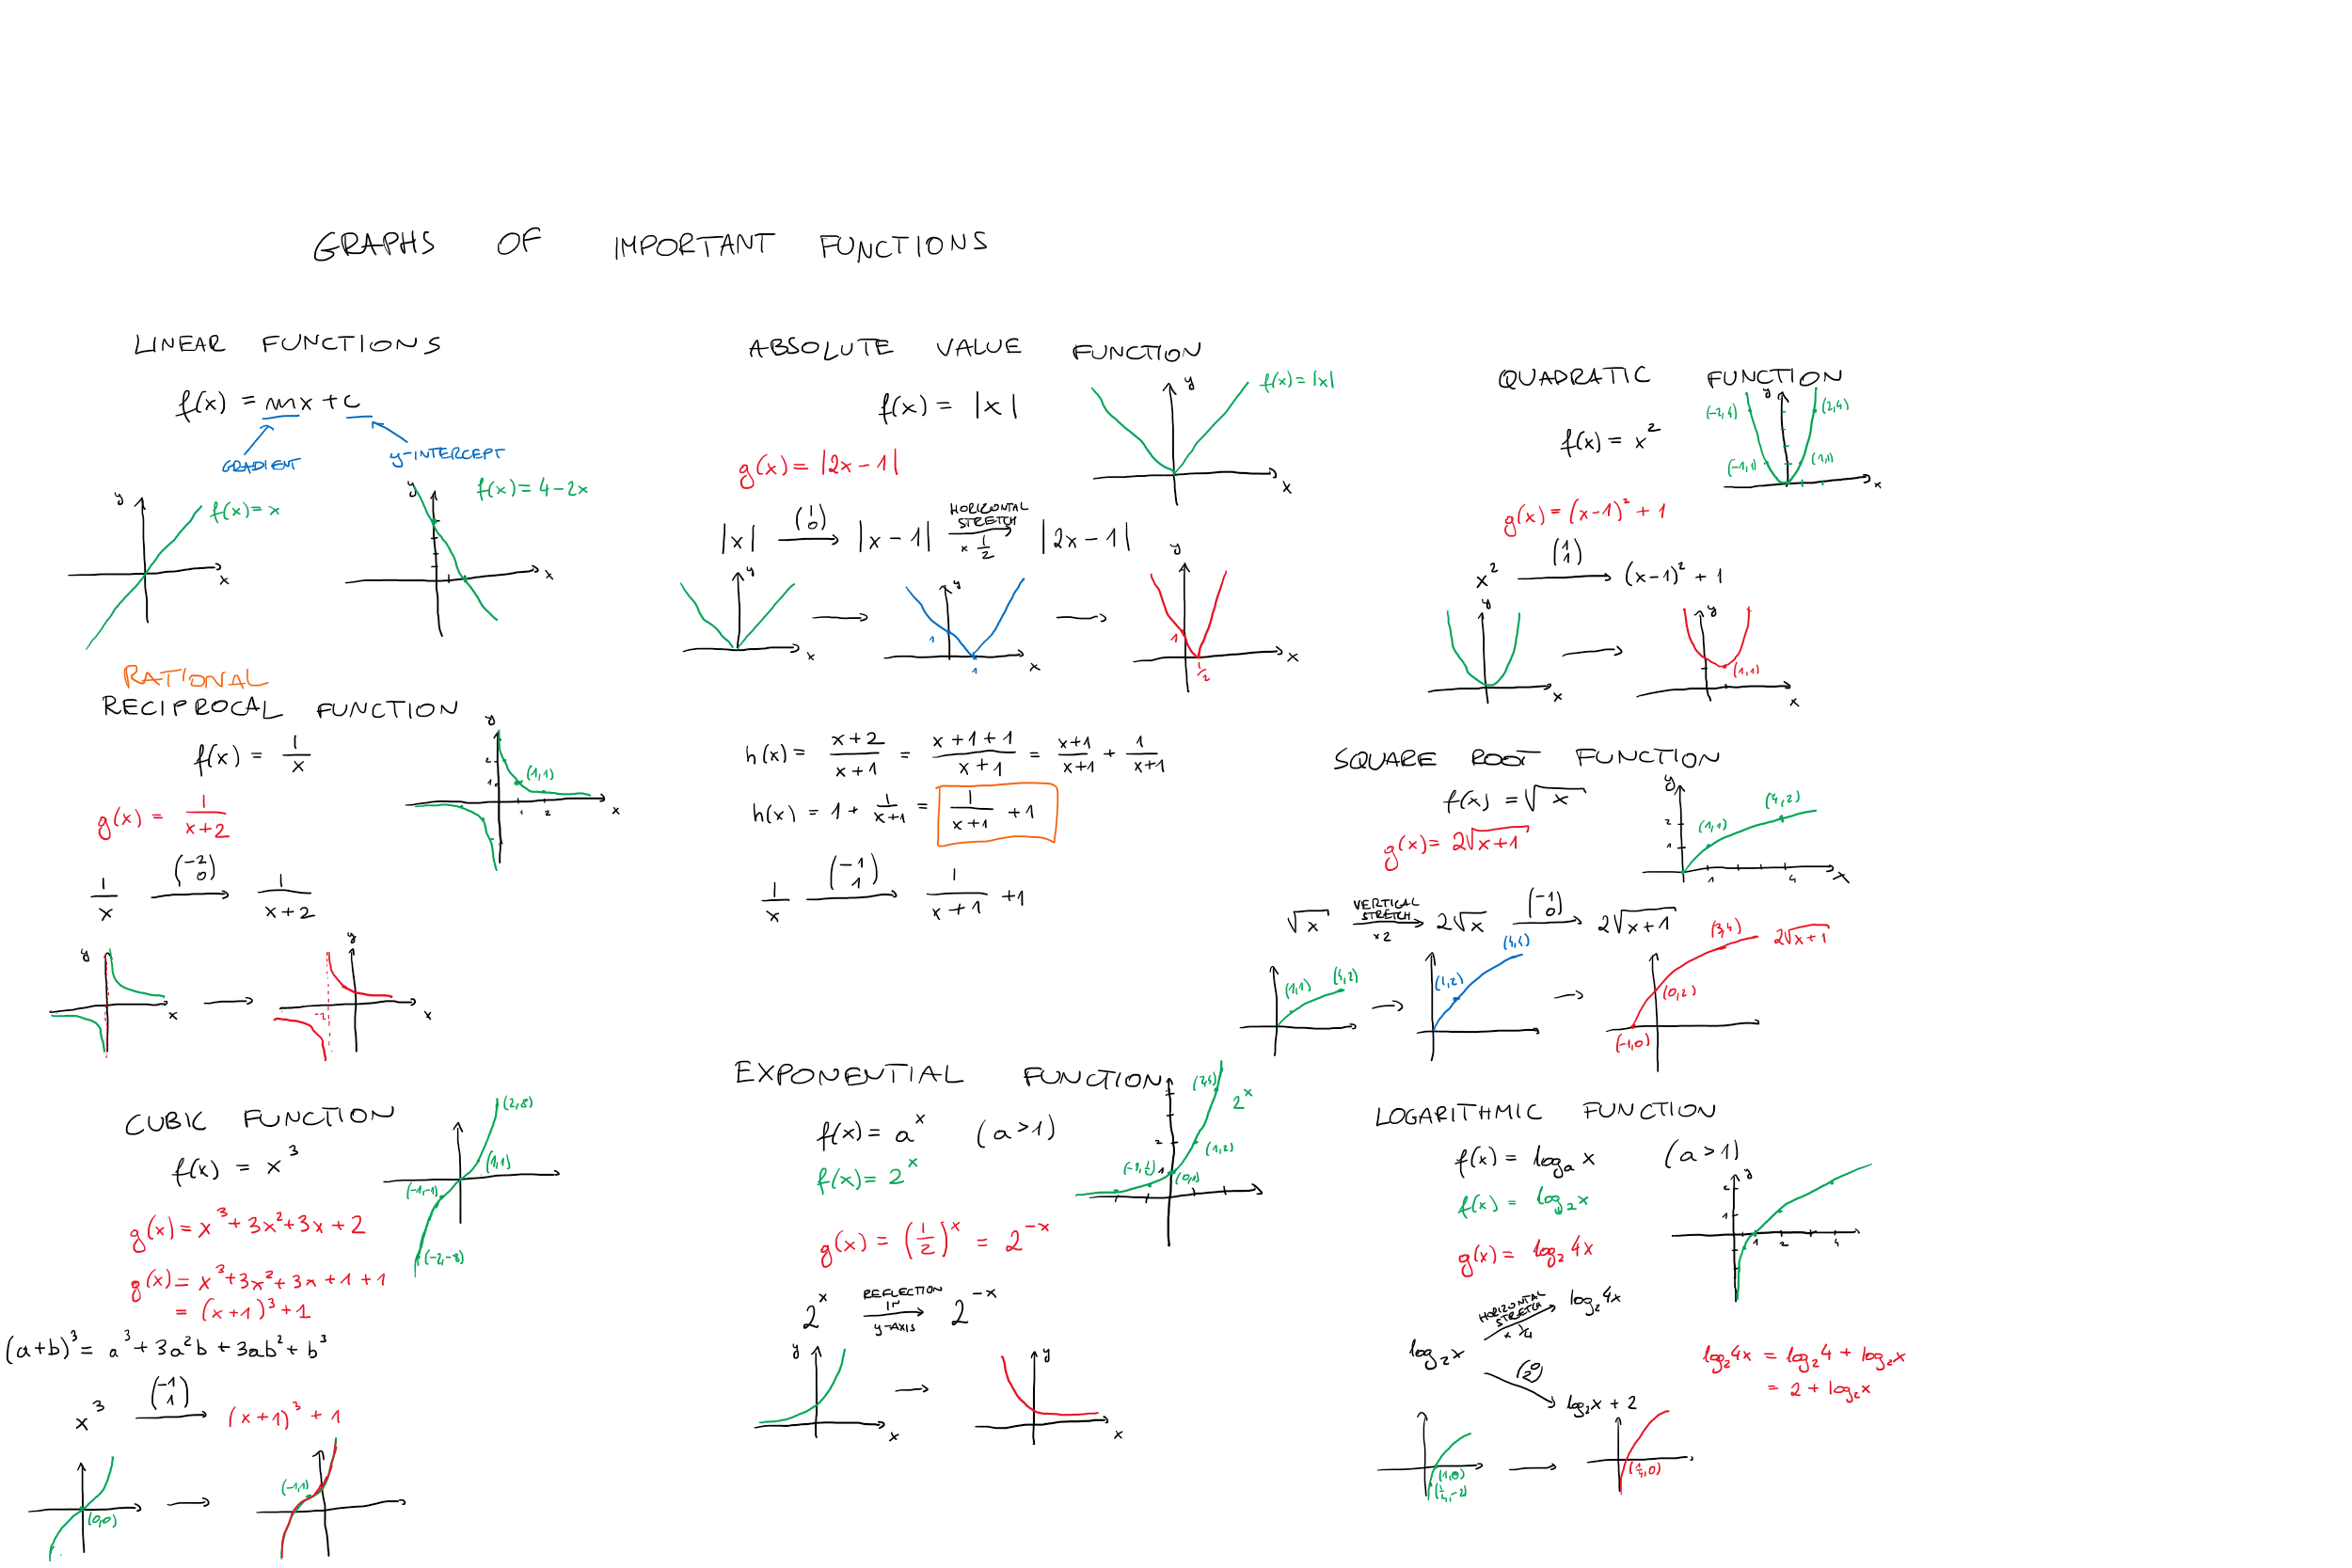 GRAPHS OF IMPORTANT FUNCTIONS
LINEAR FUNCTIONS
f(x) = mx + c
GRADIENT
y-INTERCEPT
y
f(x) = x
x
y
f(x) = 4 - 2x
x
RATIONAL
RECIPROCAL FUNCTION
f(x) = 1/x
y
2
1
(1,1)
1 2
x
g(x) = 1/(x+2)
1/x → (-2 0) 1/(x+2)
y
x
y
-2
x
CUBIC FUNCTION
f(x) = x³
(2,8)
(1,1)
(-1,-1)
(-2,-8)
g(x) = x³ + 3x² + 3x + 2
g(x) = x³ + 3x² + 3x + 1 + 1
= (x+1)³ + 1
(a+b)³ = a³ + 3a²b + 3ab² + b³
x³ → (-1 1) (x+1)³ + 1
(0,0)
(-1,1)
ABSOLUTE VALUE FUNCTION
f(x) = |x|
y
f(x) = |x|
x
g(x) = |2x - 1|
|x| → (1 0) |x - 1| → HORIZONTAL STRETCH × 1/2 |2x - 1|
y
x
y
1
1
x
y
1
1/2
x
h(x) = (x+2)/(x+1) = (x+1+1)/(x+1) = (x+1)/(x+1) + 1/(x+1)
h(x) = 1 + 1/(x+1) = 1/(x+1) + 1
1/x → (-1 1) 1/(x+1) + 1
EXPONENTIAL FUNCTION
f(x) = aˣ (a > 1)
f(x) = 2ˣ
(2,4)
2ˣ
2
(1,2)
(-1,½)
1
(0,1)
g(x) = (1/2)ˣ = 2⁻ˣ
2ˣ → REFLECTION IN y-AXIS 2⁻ˣ
y
x
y
x
QUADRATIC FUNCTION
f(x) = x²
y
(-2,4)
(2,4)
(-1,1)
(1,1)
x
g(x) = (x-1)² + 1
x² → (1 1) (x-1)² + 1
y
x
y
(1,1)
x
SQUARE ROOT FUNCTION
f(x) = √x
y
(4,2)
2
(1,1)
1
1
4
x
g(x) = 2√(x+1)
√x → VERTICAL STRETCH ×2 2√x → (-1 0) 2√(x+1)
(1,1)
(4,2)
(1,2)
(4,4)
(3,4)
2√(x+1)
(0,2)
(-1,0)
LOGARITHMIC FUNCTION
f(x) = logₐ x (a > 1)
f(x) = log₂x
y
2
1
1 2 4
g(x) = log₂ 4x
HORIZONTAL STRETCH × 1/4
log₂ 4x
log₂ x
(0 2)
log₂x + 2
log₂4x = log₂4 + log₂x
= 2 + log₂x
(1,0)
(¼,-2)
(¼,0)